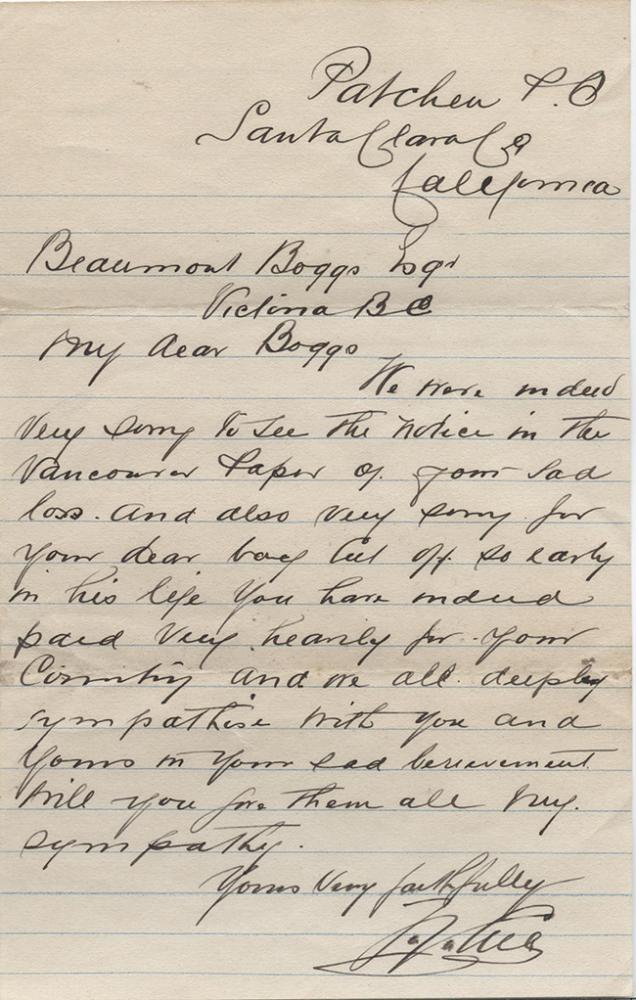 Patchen P.O
Santa Clara Co
California
Beaumont Boggs Esqr
Victoria BC
My dear Boggs
We were indeed
very sorry to see the notice in the
Vancouver Paper of your sad
loss. and also very sorry for
your dear boy cut off so early
in his life You have indeed
paid very heavily for your
Country and we all deeply
sympathise with you and
yours in your sad berievement
Will you give them all my
sympathy.
Yours very faithfully